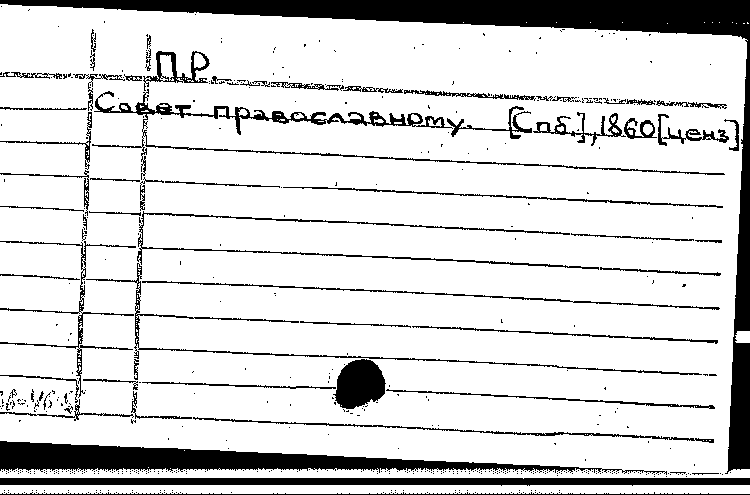 П.Р.
Совет православному. [Спб.], 1860 [ценз]